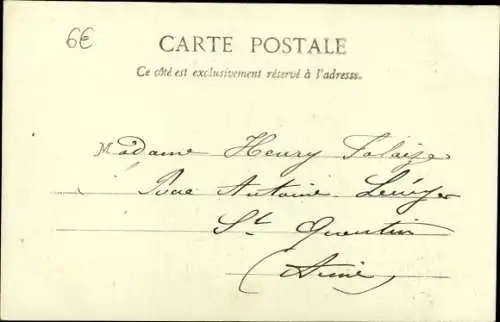 6€
CARTE POSTALE
Ce côté est exclusivement réservé à l'adresse.
Madame Henry Falaize
Rue Antoine Lécuyer
St Quentin
(Aisne)